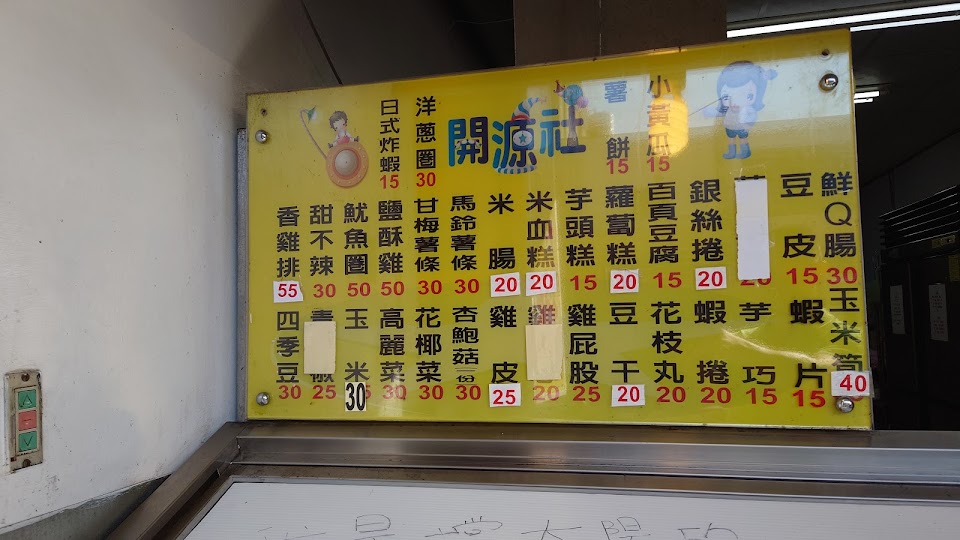 開源社
小黃瓜 15
薯餅 15
洋蔥圈 30
日式炸蝦 15
鮮Q腸 30
豆皮 15
銀絲捲 20
百頁豆腐 15
蘿蔔糕 20
芋頭糕 15
米血糕 20
米腸 20
馬鈴薯條 30
甘梅薯條 30
鹽酥雞 50
魷魚圈 50
甜不辣 30
香雞排 55
玉米筒 40
蝦片 15
芋巧 15
蝦捲 20
花枝丸 20
豆干 20
雞屁股 25
雞 20
雞皮 25
杏鮑菇一份 30
花椰菜 30
高麗菜 30
玉米 30
青椒 25
四季豆 30